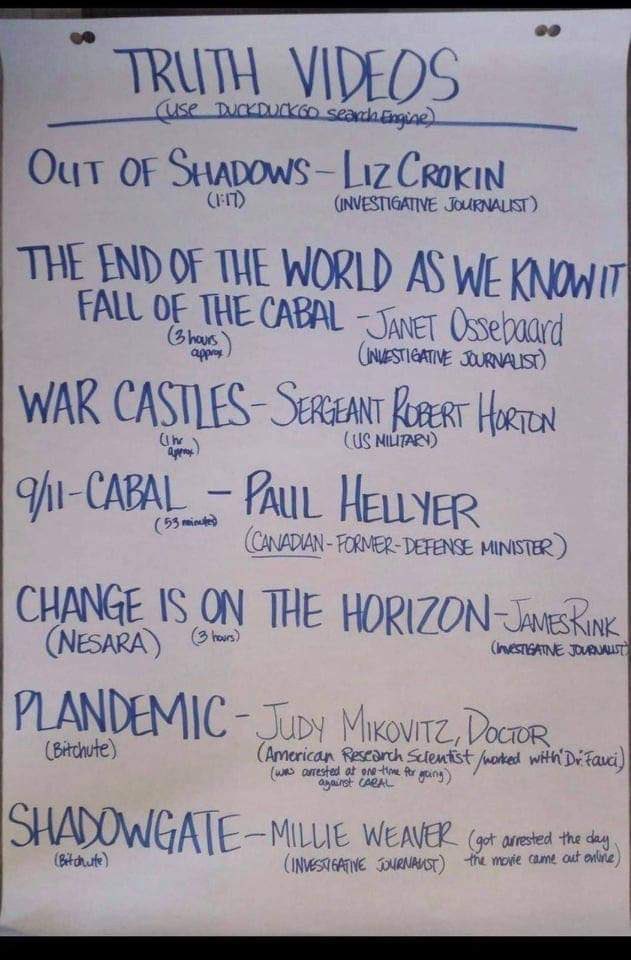 TRUTH VIDEOS
(USE DUCKDUCKGO search Engine)
OUT OF SHADOWS - LIZ CROKIN
(1:17) (INVESTIGATIVE JOURNALIST)
THE END OF THE WORLD AS WE KNOW IT
FALL OF THE CABAL - JANET Ossebaard
(3 hours approx) (INVESTIGATIVE JOURNALIST)
WAR CASTLES - SERGEANT ROBERT HORTON
(1 hr approx) (US MILITARY)
9/11 - CABAL - PAUL HELLYER
(53 minutes)
(CANADIAN - FORMER - DEFENSE MINISTER)
CHANGE IS ON THE HORIZON - JAMES RINK
(NESARA) (3 hours) (INVESTIGATIVE JOURNALIST)
PLANDEMIC - JUDY MIKOVITZ, DOCTOR
(Bitchute) (American Research Scientist / worked with Dr. Fauci)
(was arrested at one time for going
against CABAL)
SHADOWGATE - MILLIE WEAVER (got arrested the day
(Bitchute) (INVESTIGATIVE JOURNALIST) the movie came out online)